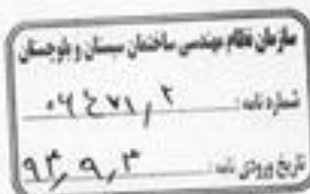 سازمان نظام مهندسی ساختمان سیستان و بلوچستان
شماره نامه: ۰۷۴۷۱٫۲
تاریخ ورودی نامه: ۹۴٫۹٫۳